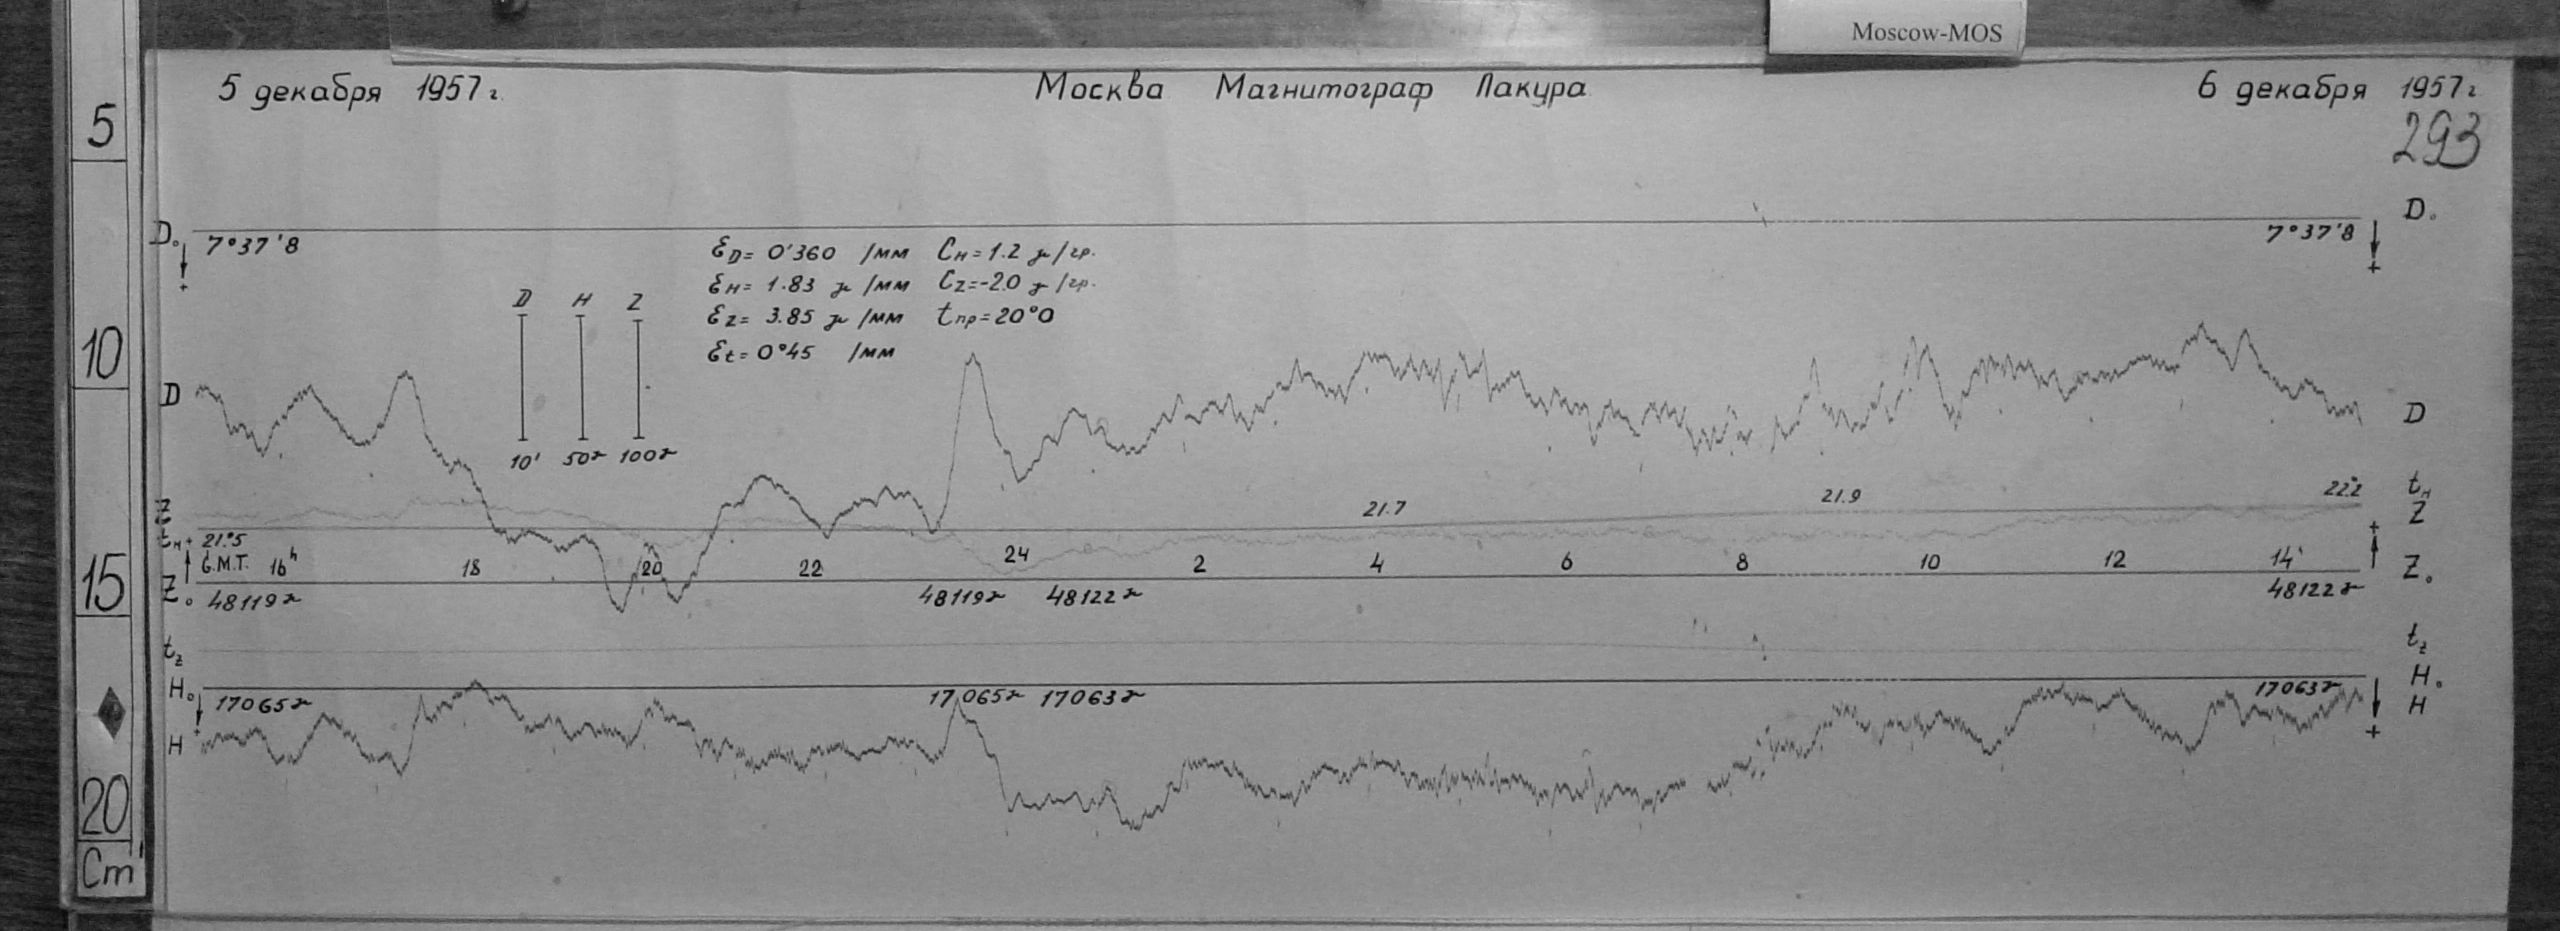 Moscow-MOS
5 декабря 1957 г.
Москва Магнитограф Лакура
6 декабря 1957 г
293
5
10
15
20
Cm
D₀
7°37'8
D₀
7°37'8
+
+
Ɛ_D = 0'360 /мм C_H = 1.2 γ/гр.
Ɛ_H = 1.83 γ /мм C_Z = -2.0 γ /гр.
Ɛ_Z = 3.85 γ /мм t_пр = 20°0
Ɛ_t = 0°45 /мм
D H Z
10' 50γ 100γ
D
D
Z
t_H + 21°5
21.7
21.9
22°2
t_H
Z
+
G.M.T. 16ʰ 18 20 22 24 2 4 6 8 10 12 14
Z₀
48119γ
48119γ 48122γ
48122γ
Z₀
t_z
t_z
H₀
17065γ
17065γ 17063γ
17063γ
H₀
+
H
H
+